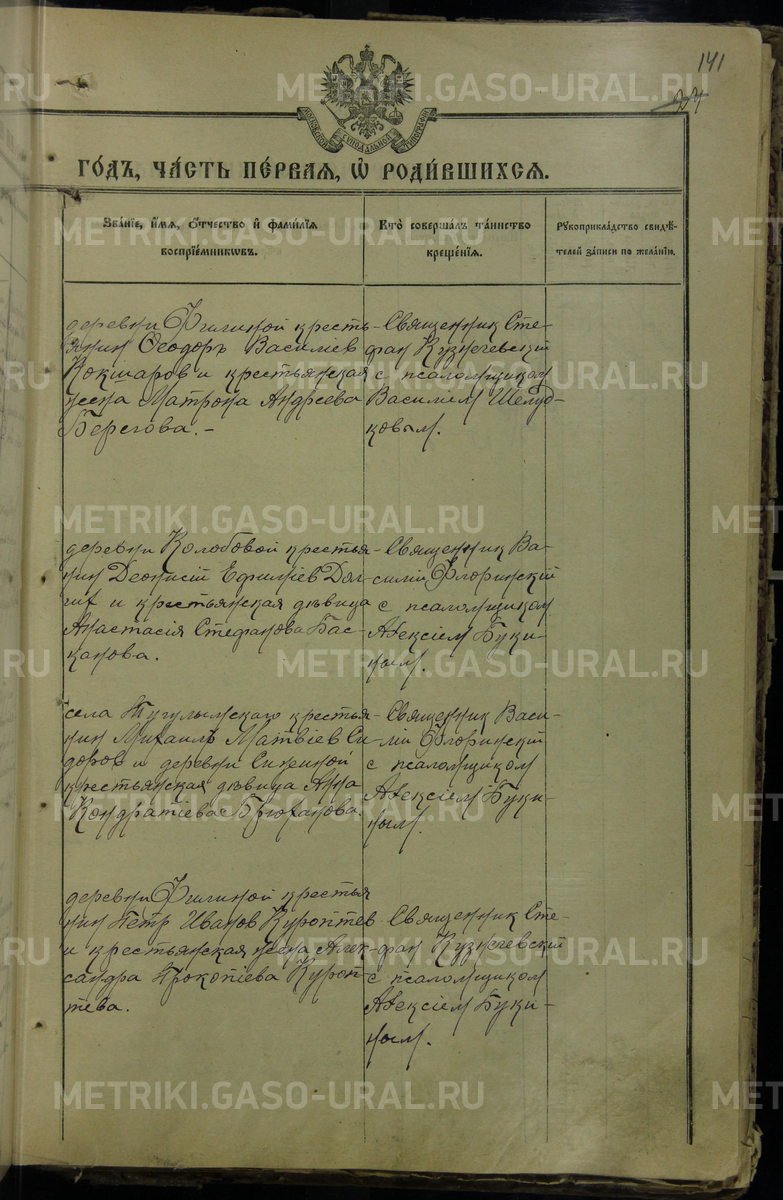 141
27
МОСКОВСКОЙ СѴНОДАЛЬНОЙ ТИПОГРАФІИ
ГО́ДЪ, ЧА́СТЬ ПЕ́РВАЯ, Ѡ҆ РОДИ́ВШИХСЯ.
Зва́нїе, и҆́мя, ѻ҆́тчество и҆ фами́лїя
воспрїе́мникѡвъ.
Кто̀ соверша́лъ та́инство
креще́нїя.
Рꙋкоприкла́дство свидѣ́-
телей за́писи по жела́нїю.
деревни Фигиной кресть-
янин Ѳеодоръ Василиев
Кокшаров и крестьянская
жена Матрона Андреева
Берегова. -
Священник Сте-
фан Кузнечевский
с псаломщиком
Василием Шелуд-
ковым.
деревни Колобовой крестья-
нин Деонисій Ефимиев
и крестьянская дѣвица
Анастасія Стефанова Бас-
канова.
Священник Ва-
силій Флоринский
с псаломщиком
Алексіем Буки-
ным.
села Тугулымскаго крестья-
нин Михаилъ Матвіев Си-
доров и деревни
крестьянская дѣвица Анна
Кондратіева Брюханова.
Священник Васи-
лій Флоринский
с псаломщиком
Алексіем Буки-
ным.
деревни Фигиной крестья
нин Петр Иванов Куроптев
и крестьянская жена Алек-
сандра Прокопіева Куроп-
тева.
Священник Сте-
фан Кузнечевский
с псаломщиком
Алексіем Буки-
ным.
METRIKI.GASO-URAL.RU